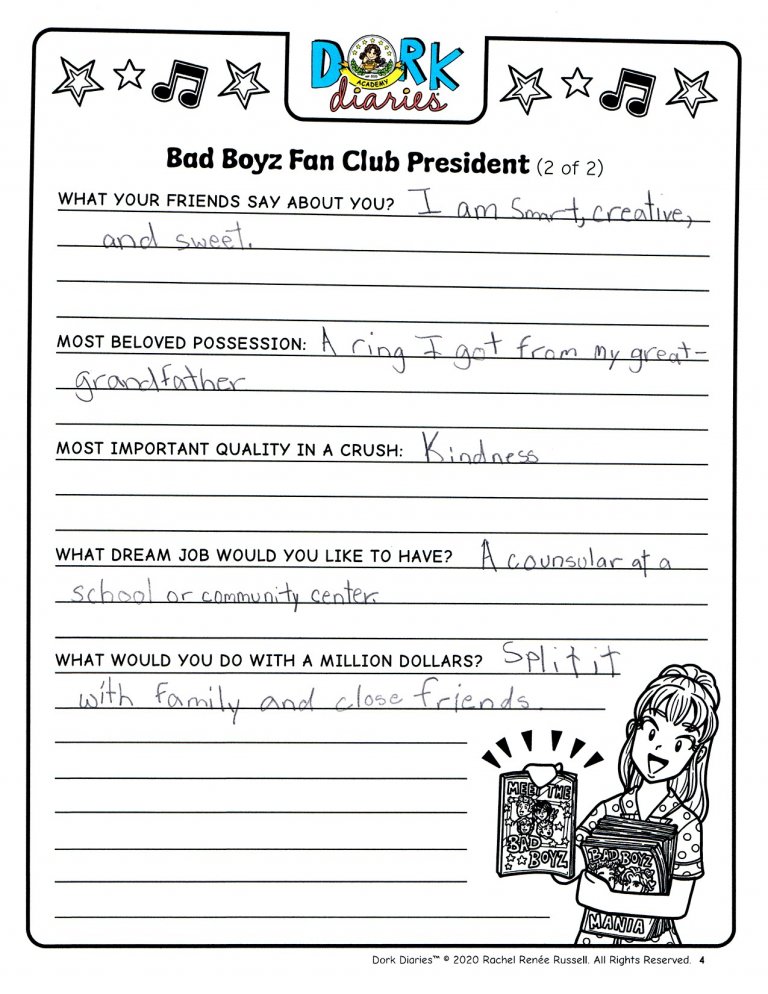 DORK
ACADEMY
diaries
Bad Boyz Fan Club President (2 of 2)
WHAT YOUR FRIENDS SAY ABOUT YOU? I am Smart, creative,
and sweet.
MOST BELOVED POSSESSION: A ring I got from my great-
grandfather
MOST IMPORTANT QUALITY IN A CRUSH: Kindness
WHAT DREAM JOB WOULD YOU LIKE TO HAVE? A counsular at a
school or community center.
WHAT WOULD YOU DO WITH A MILLION DOLLARS? Split it
with family and close friends.
MEET THE
BAD
BOYZ
BAD BOYZ
MANIA
Dork Diaries™ © 2020 Rachel Renée Russell. All Rights Reserved. 4